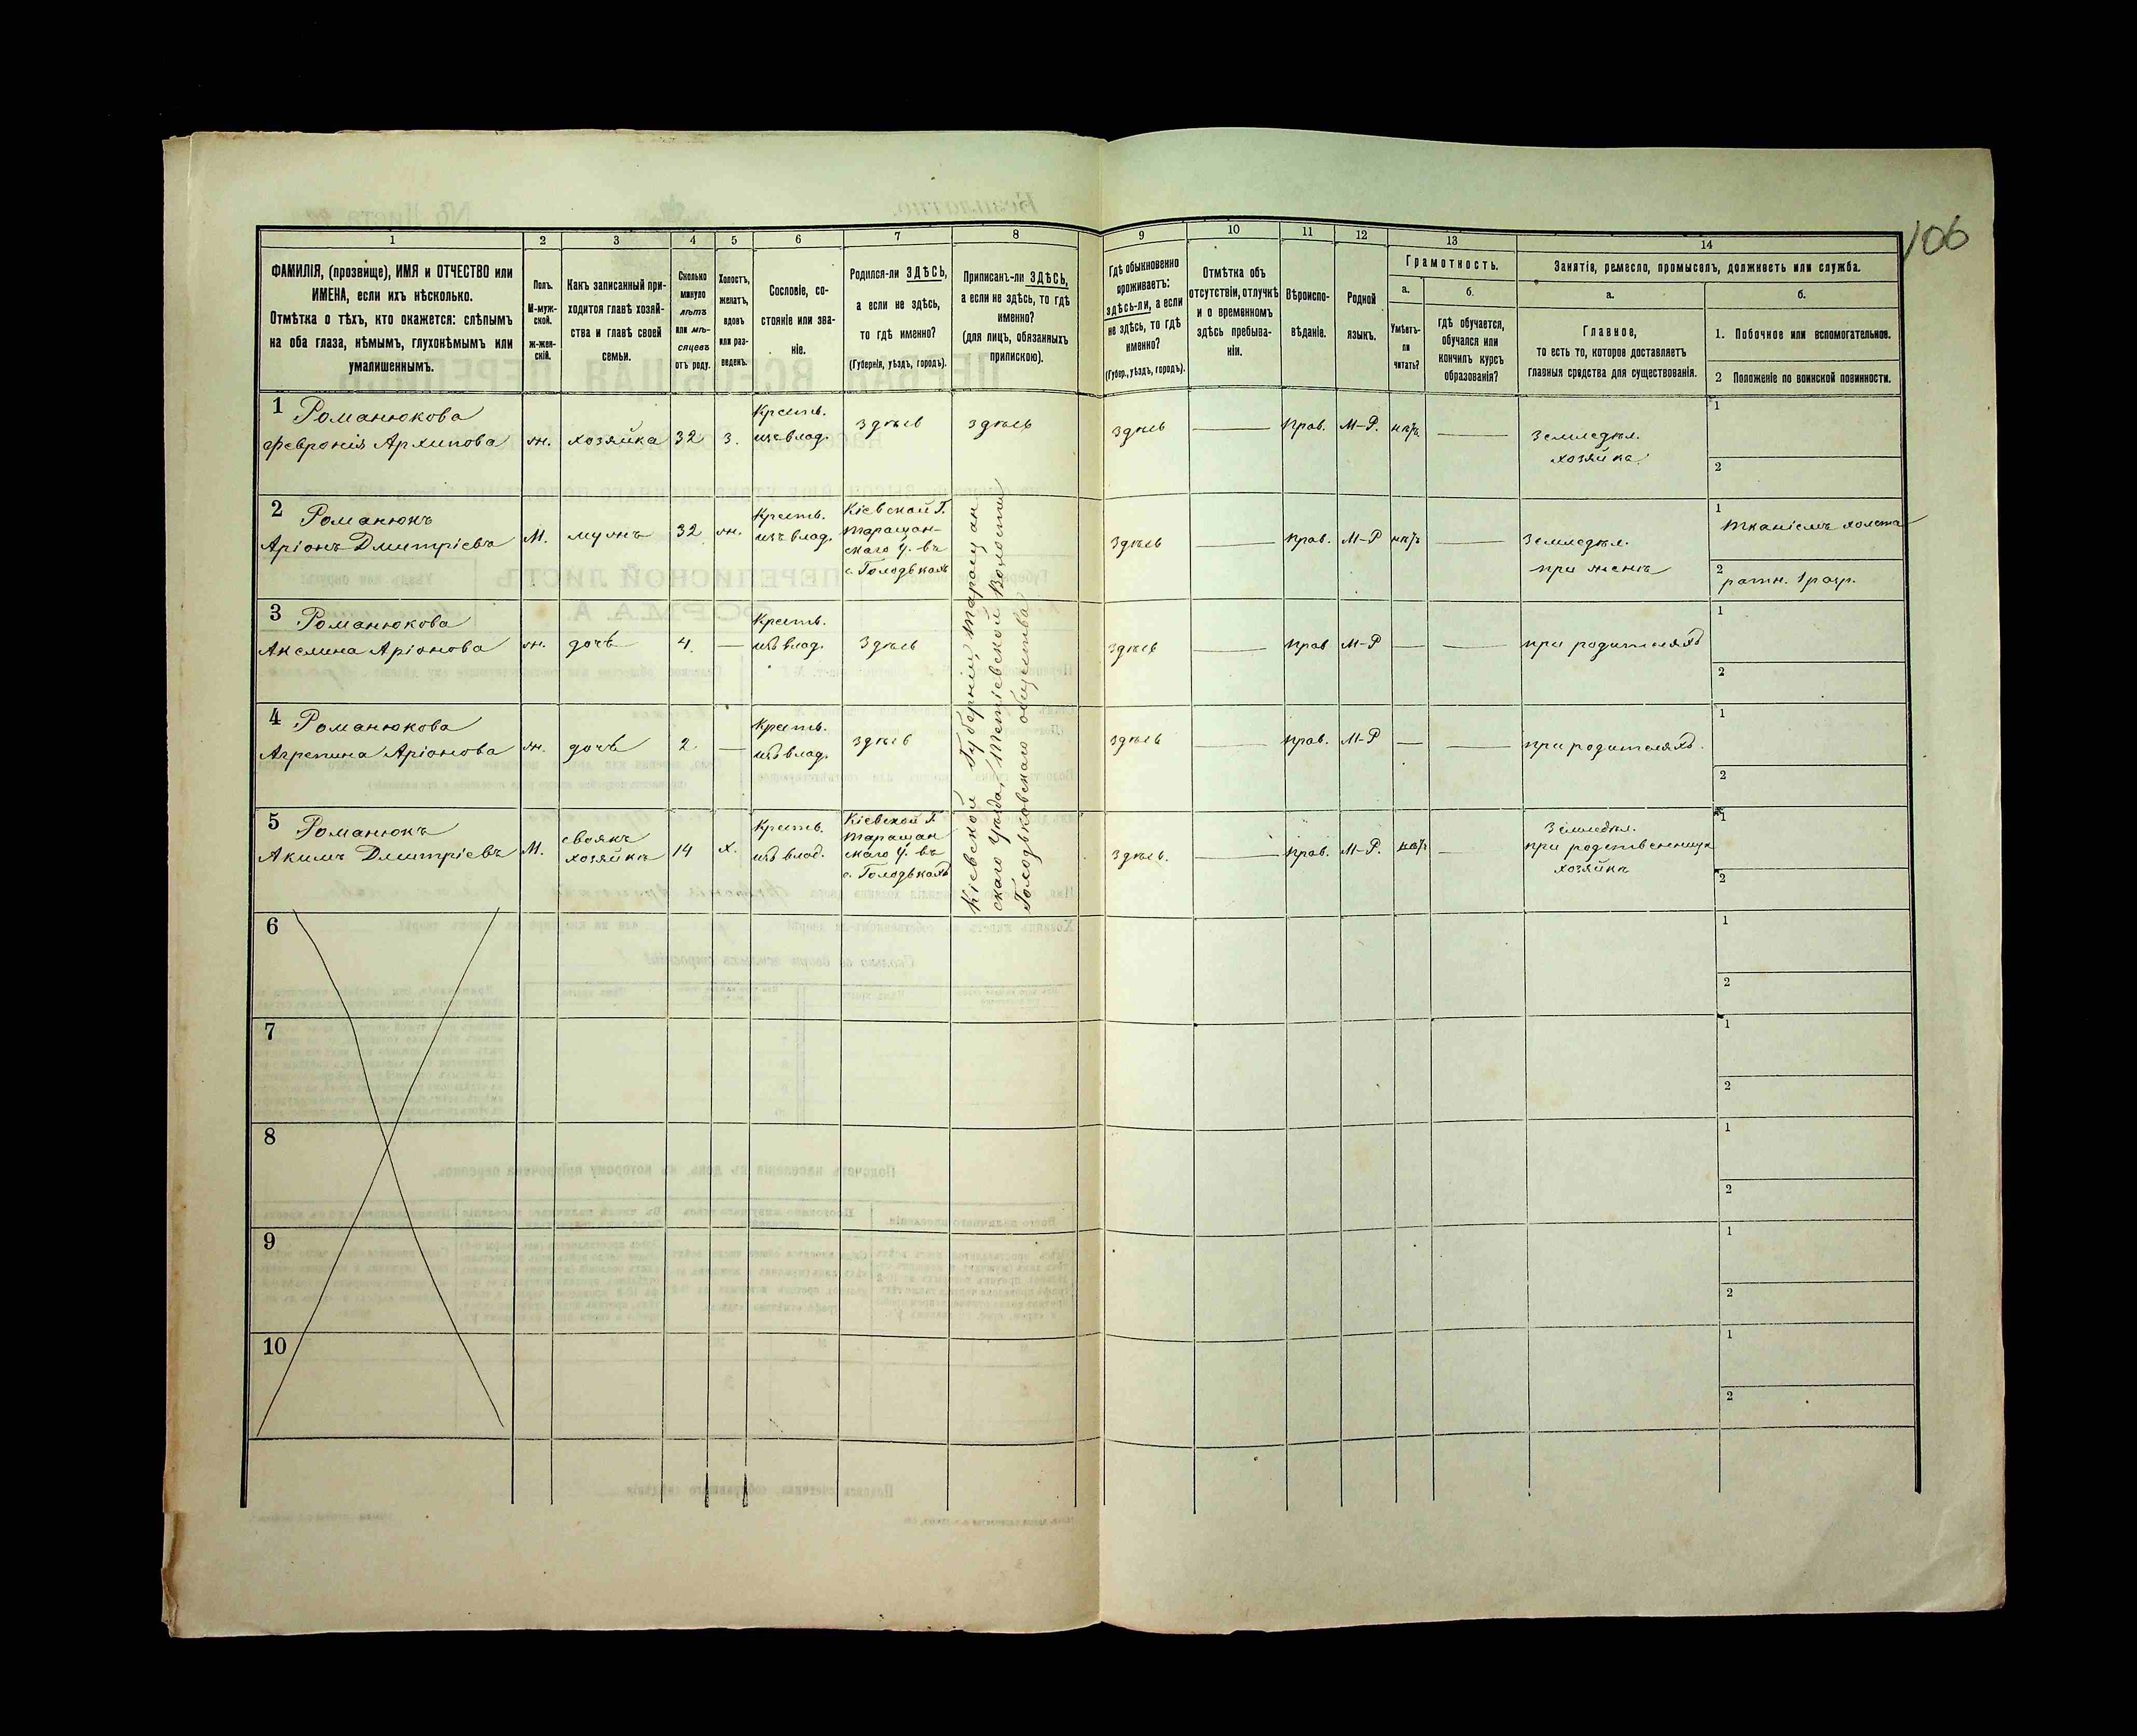 106
1 2 3 4 5 6 7 8 9 10 11 12 13 14
ФАМИЛІЯ, (прозвище), ИМЯ и ОТЧЕСТВО или
ИМЕНА, если ихъ нѣсколько.
Отмѣтка о тѣхъ, кто окажется: слѣпымъ
на оба глаза, нѣмымъ, глухонѣмымъ или
умалишеннымъ.
Полъ.
М-муж-
ской.
ж-жен-
скій.
Какъ записанный при-
ходится главѣ хозяй-
ства и главѣ своей
семьи.
Сколько
минуло
лѣтъ
или мѣ-
сяцевъ
отъ роду.
Холостъ,
женатъ,
вдовъ
или раз-
веденъ.
Сословіе, со-
стояніе или зва-
ніе.
Родился-ли ЗДѢСЬ,
а если не здѣсь,
то гдѣ именно?
(Губернія, уѣздъ, городъ).
Приписанъ-ли ЗДѢСЬ,
а если не здѣсь, то гдѣ
именно?
(для лицъ, обязанныхъ
припискою).
Гдѣ обыкновенно
проживаетъ:
здѣсь-ли, а если
не здѣсь, то гдѣ
именно?
(Губер., уѣздъ, городъ).
Отмѣтка объ
отсутствіи, отлучкѣ
и о временномъ
здѣсь пребыва-
ніи.
Вѣроиспо-
вѣданіе.
Родной
языкъ.
Грамотность.
а.
Умѣетъ-
ли
читать?
б.
гдѣ обучается,
обучался или
кончилъ курсъ
образованія?
Занятіе, ремесло, промыселъ, должность или служба.
а.
Главное,
то есть то, которое доставляетъ
главныя средства для существованія.
б.
1. Побочное или вспомогательное.
2 Положеніе по воинской повинности.
1 Романюкова
Февронія Архипова
ж.
хозяйка
32
з.
Крестъ.
изъ влад.
здѣсь
здѣсь
здѣсь
прав.
М-Р.
нѣтъ
Земледѣл.
хозяйка
1
2
2 Романюкъ
Аріонъ Дмитріевъ
М.
мужъ
32
ж.
Крестъ.
изъ влад.
Кіевской Г.
Таращан-
скаго у. въ
с. Голодькахъ
Кіевской Губерніи, Таращан
скаго Уѣзда, Тетіевской Волости
Голодьковскаго общества
здѣсь
прав.
М-Р
нѣтъ
Земледѣл.
при женѣ
1
Тканіемъ холста
2
ратн. 1 разр.
3 Романюкова
Акелина Аріонова
ж.
дочь
4.
Крестъ.
изъ влад.
Здѣсь
здѣсь
прав
М-Р
при родителяхъ
1
2
4 Романюкова
Агрепина Аріонова
ж.
дочь
2
Крестъ.
изъ влад.
здѣсь
здѣсь
прав.
М-Р
при родителяхъ.
1
2
5 Романюкъ
Акимъ Дмитріевъ
М.
своякъ
хозяйки
14
х.
Крестъ.
изъ влад.
Кіевской Г.
Таращан
скаго у. въ
с. Голодькахъ
здѣсь.
прав.
М-Р.
нѣтъ
Земледѣл.
при родственницѣ
хозяйкѣ
1
2
6
1
2
7
1
2
8
1
2
9
1
2
10
1
2